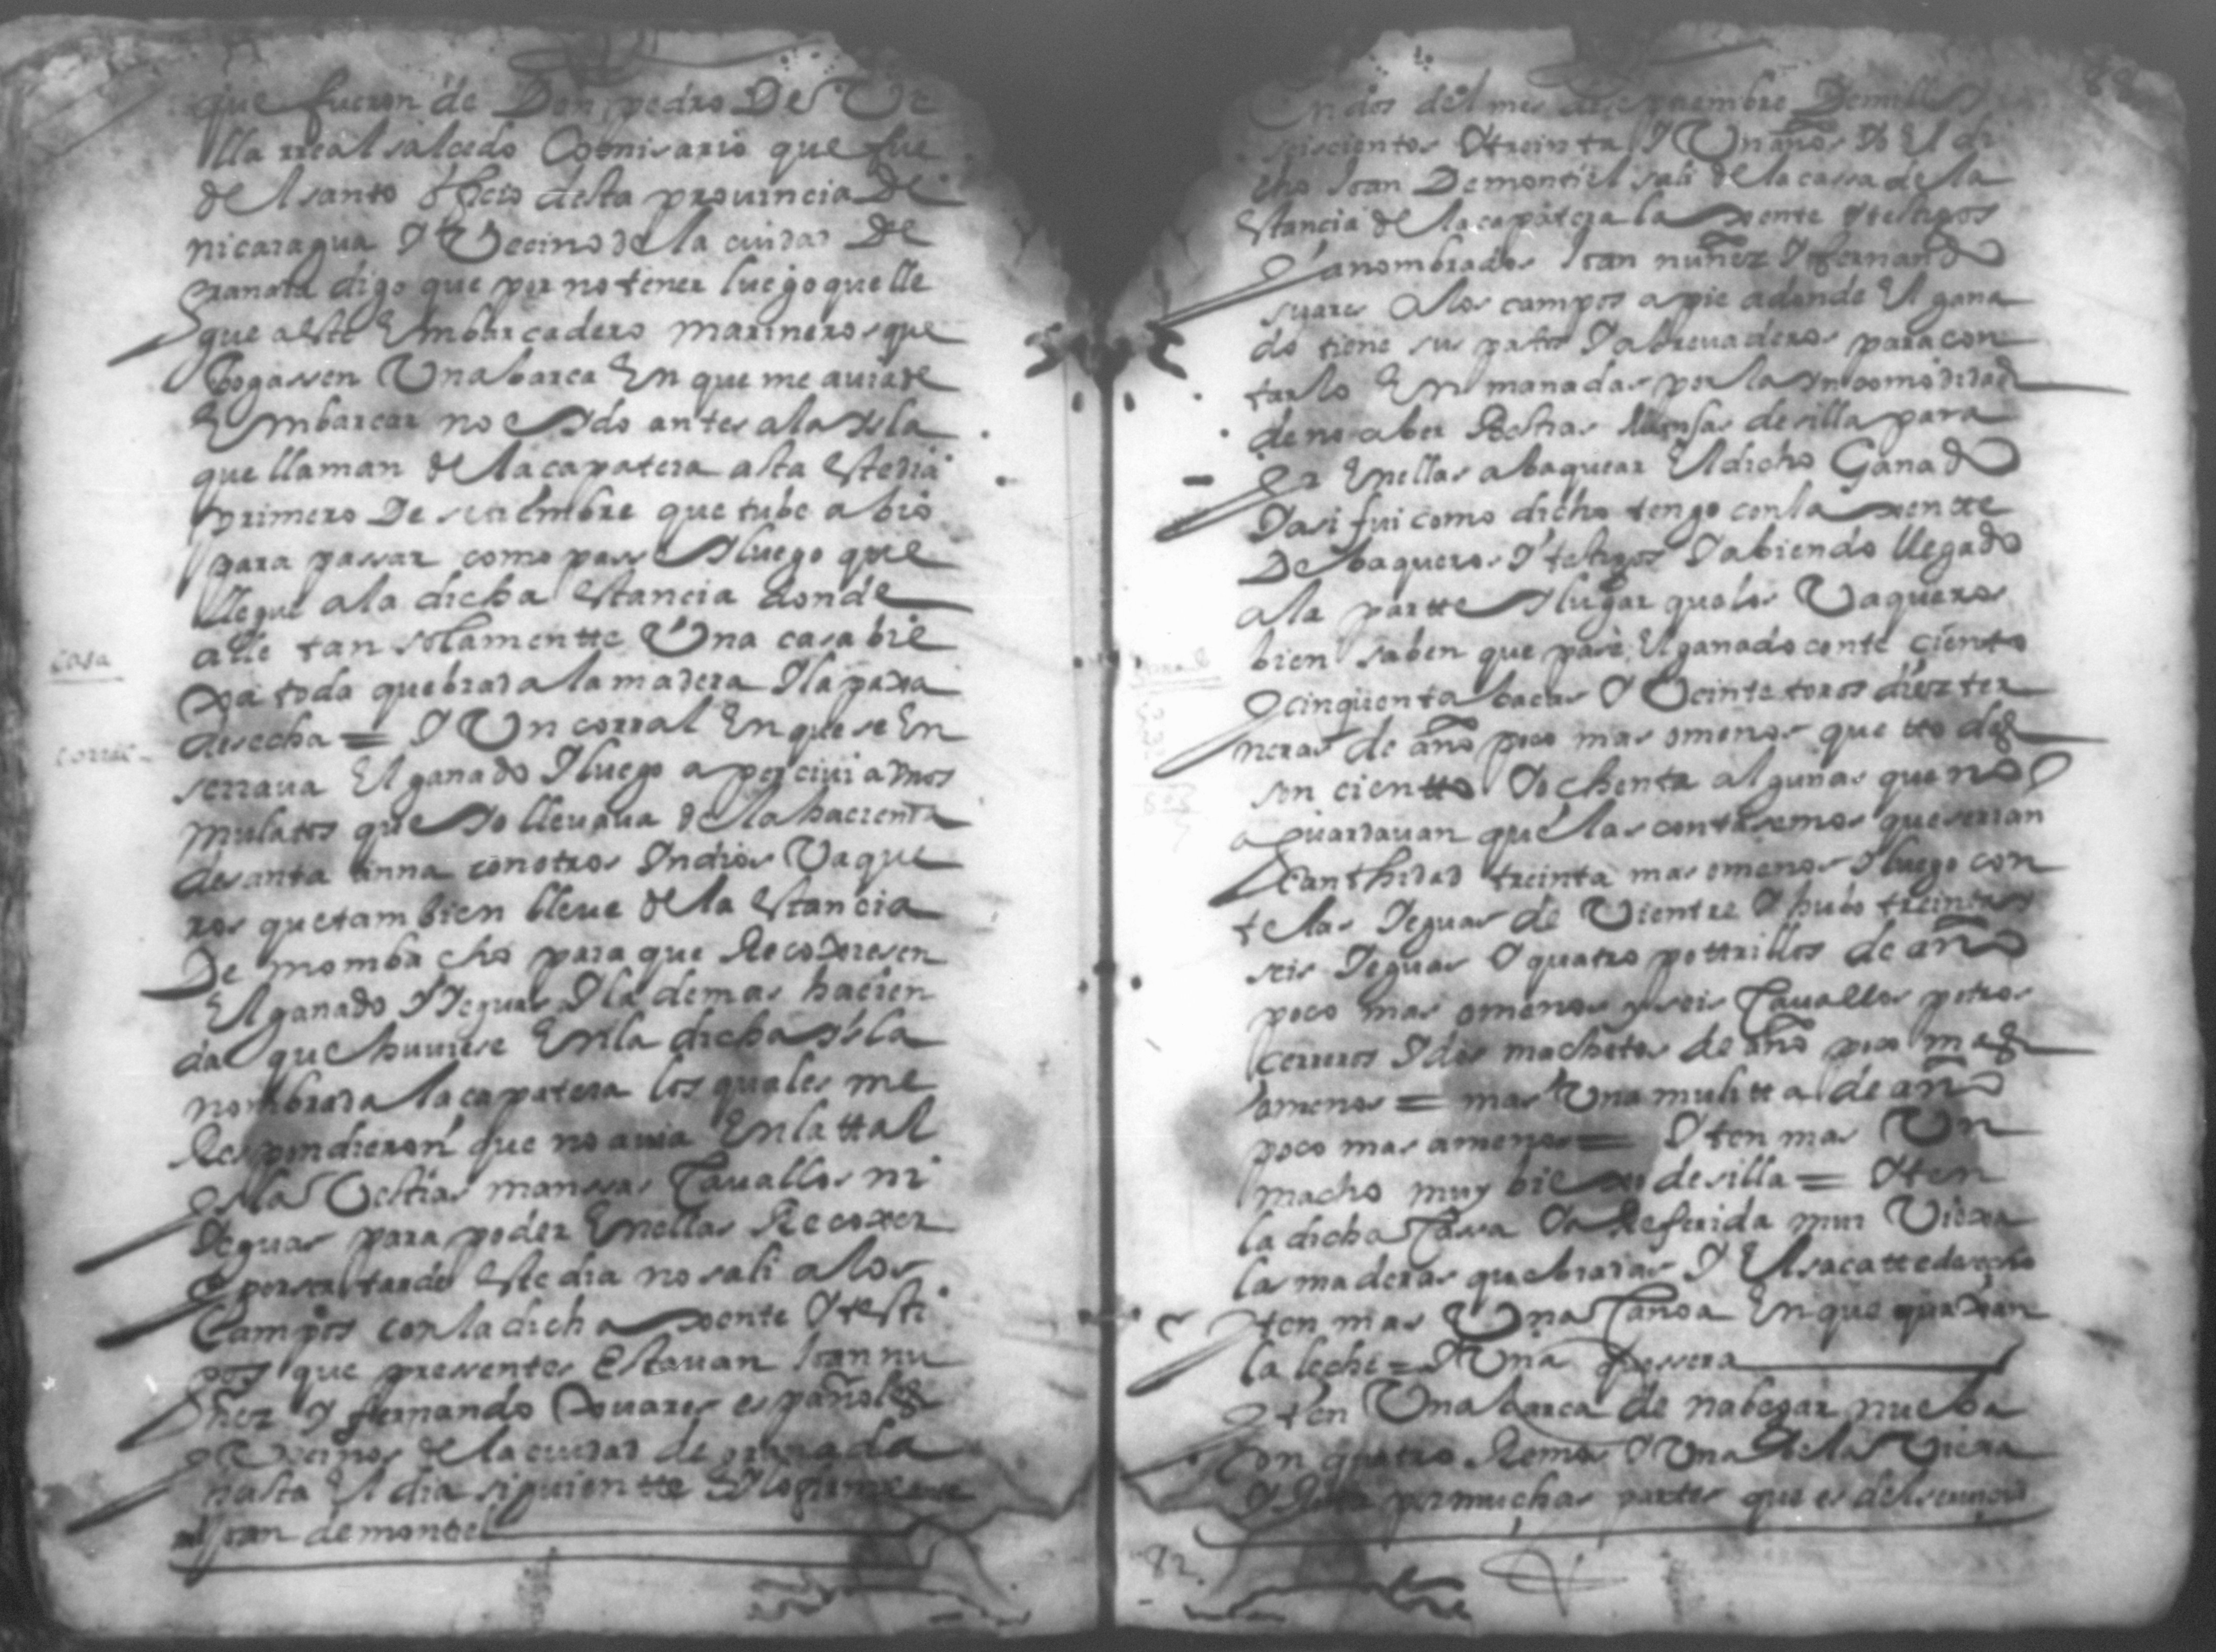 que fueron de Don pedro De Ve
lla rreal salcedo Comisario que fue
del santo officio desta prouincia De
nicaragua Y Vecino de la ciudad De
granada digo que por no tener luego que lle
gue a este Embarcadero marineros que
bogassen Una barca En que me auiade
Embarcar no e Ydo antes a la Ysla
que llaman de la çapatera asta Este dia
primero De setiembre que tube abio
para passar como passe Y luego que
llegue a la dicha Estancia donde
alle tan solamentte Una casa bie
xa toda quebrada la madera Y la paxa
desecha = Y Un corral En que se En
serraua El ganado Y luego apercivi a mos
mulatos que Yo lleuaua de la hacienda
de santa anna con otros Yndios Vaque
ros que tambien lleue de la Estancia
De mombacho para que Recoxiesen
El ganado Y Yeguas Y la demas hacien
da que huuiese En la dicha Ysla
nombrada la çapatera los quales me
Respondieron que no auia En la ttal
Ysla Vestias mansas Cauallos ni
Yeguas para poder En ellas Recoxer
Y por ser tarde Este dia no sali a los
Campos con la dicha xente Y testi
gos que presentes Estauan Joan nu
ñez Y fernando Xuares españoles
Vecinos de la ciudad de granada
hasta El dia siguientte Y lo firme
Joan de montiel
casa
corral
En dos del mes de setiembre De mill Y
seiscientos Y treinta Y Un años Yo El di
cho Joan De montiel sali de la cassa de la
Estancia de la çapatera la xente Y testigos
Ya nombrados Joan nuñez Y fernando
suares a los campos a pie adonde El gana
do tiene sus pastos Y abreuaderos para con
tarlo En manadas por la Yncomodidad
de no aber Bestias mansas de silla para
Yr En ellas a baquear El dicho Ganado
Y asi fui como dicho tengo con la xentte
De baqueros Y testigos Y abiendo llegado
a la partte Y lugar que los Vaqueros
bien saben que pase El ganado conte ciento
Y cinquenta bacas Y Veinte toros diez ter
neras de año poco mas o menos que ttodas
son cientto Y ochenta algunas que no
aguardauan que las contasemos que serian
Canthidad treinta mas o menos Y luego con
te las Yeguas de Vientre Y hubo treinta Y
seis Yeguas Y quatro pottrillos de año
poco mas o menos Y seis Cauallos potros
cerreros Y dos machitos de año poco mas
o menos = mas Una mulitta de año
poco mas a menos = Y ten mas Un
macho muy biexo de silla = Yten
la dicha Cassa Ya Referida mui Viexa
las maderas quebradas Y El sacatte desecho
Yten mas Una Canoa En que quaxan
la leche = Y Una
Yten Una barca de nabegar nueba
Con quatro Remos Y Una Vela Viexa
Y Rota por muchas partes que es del seruicio
82